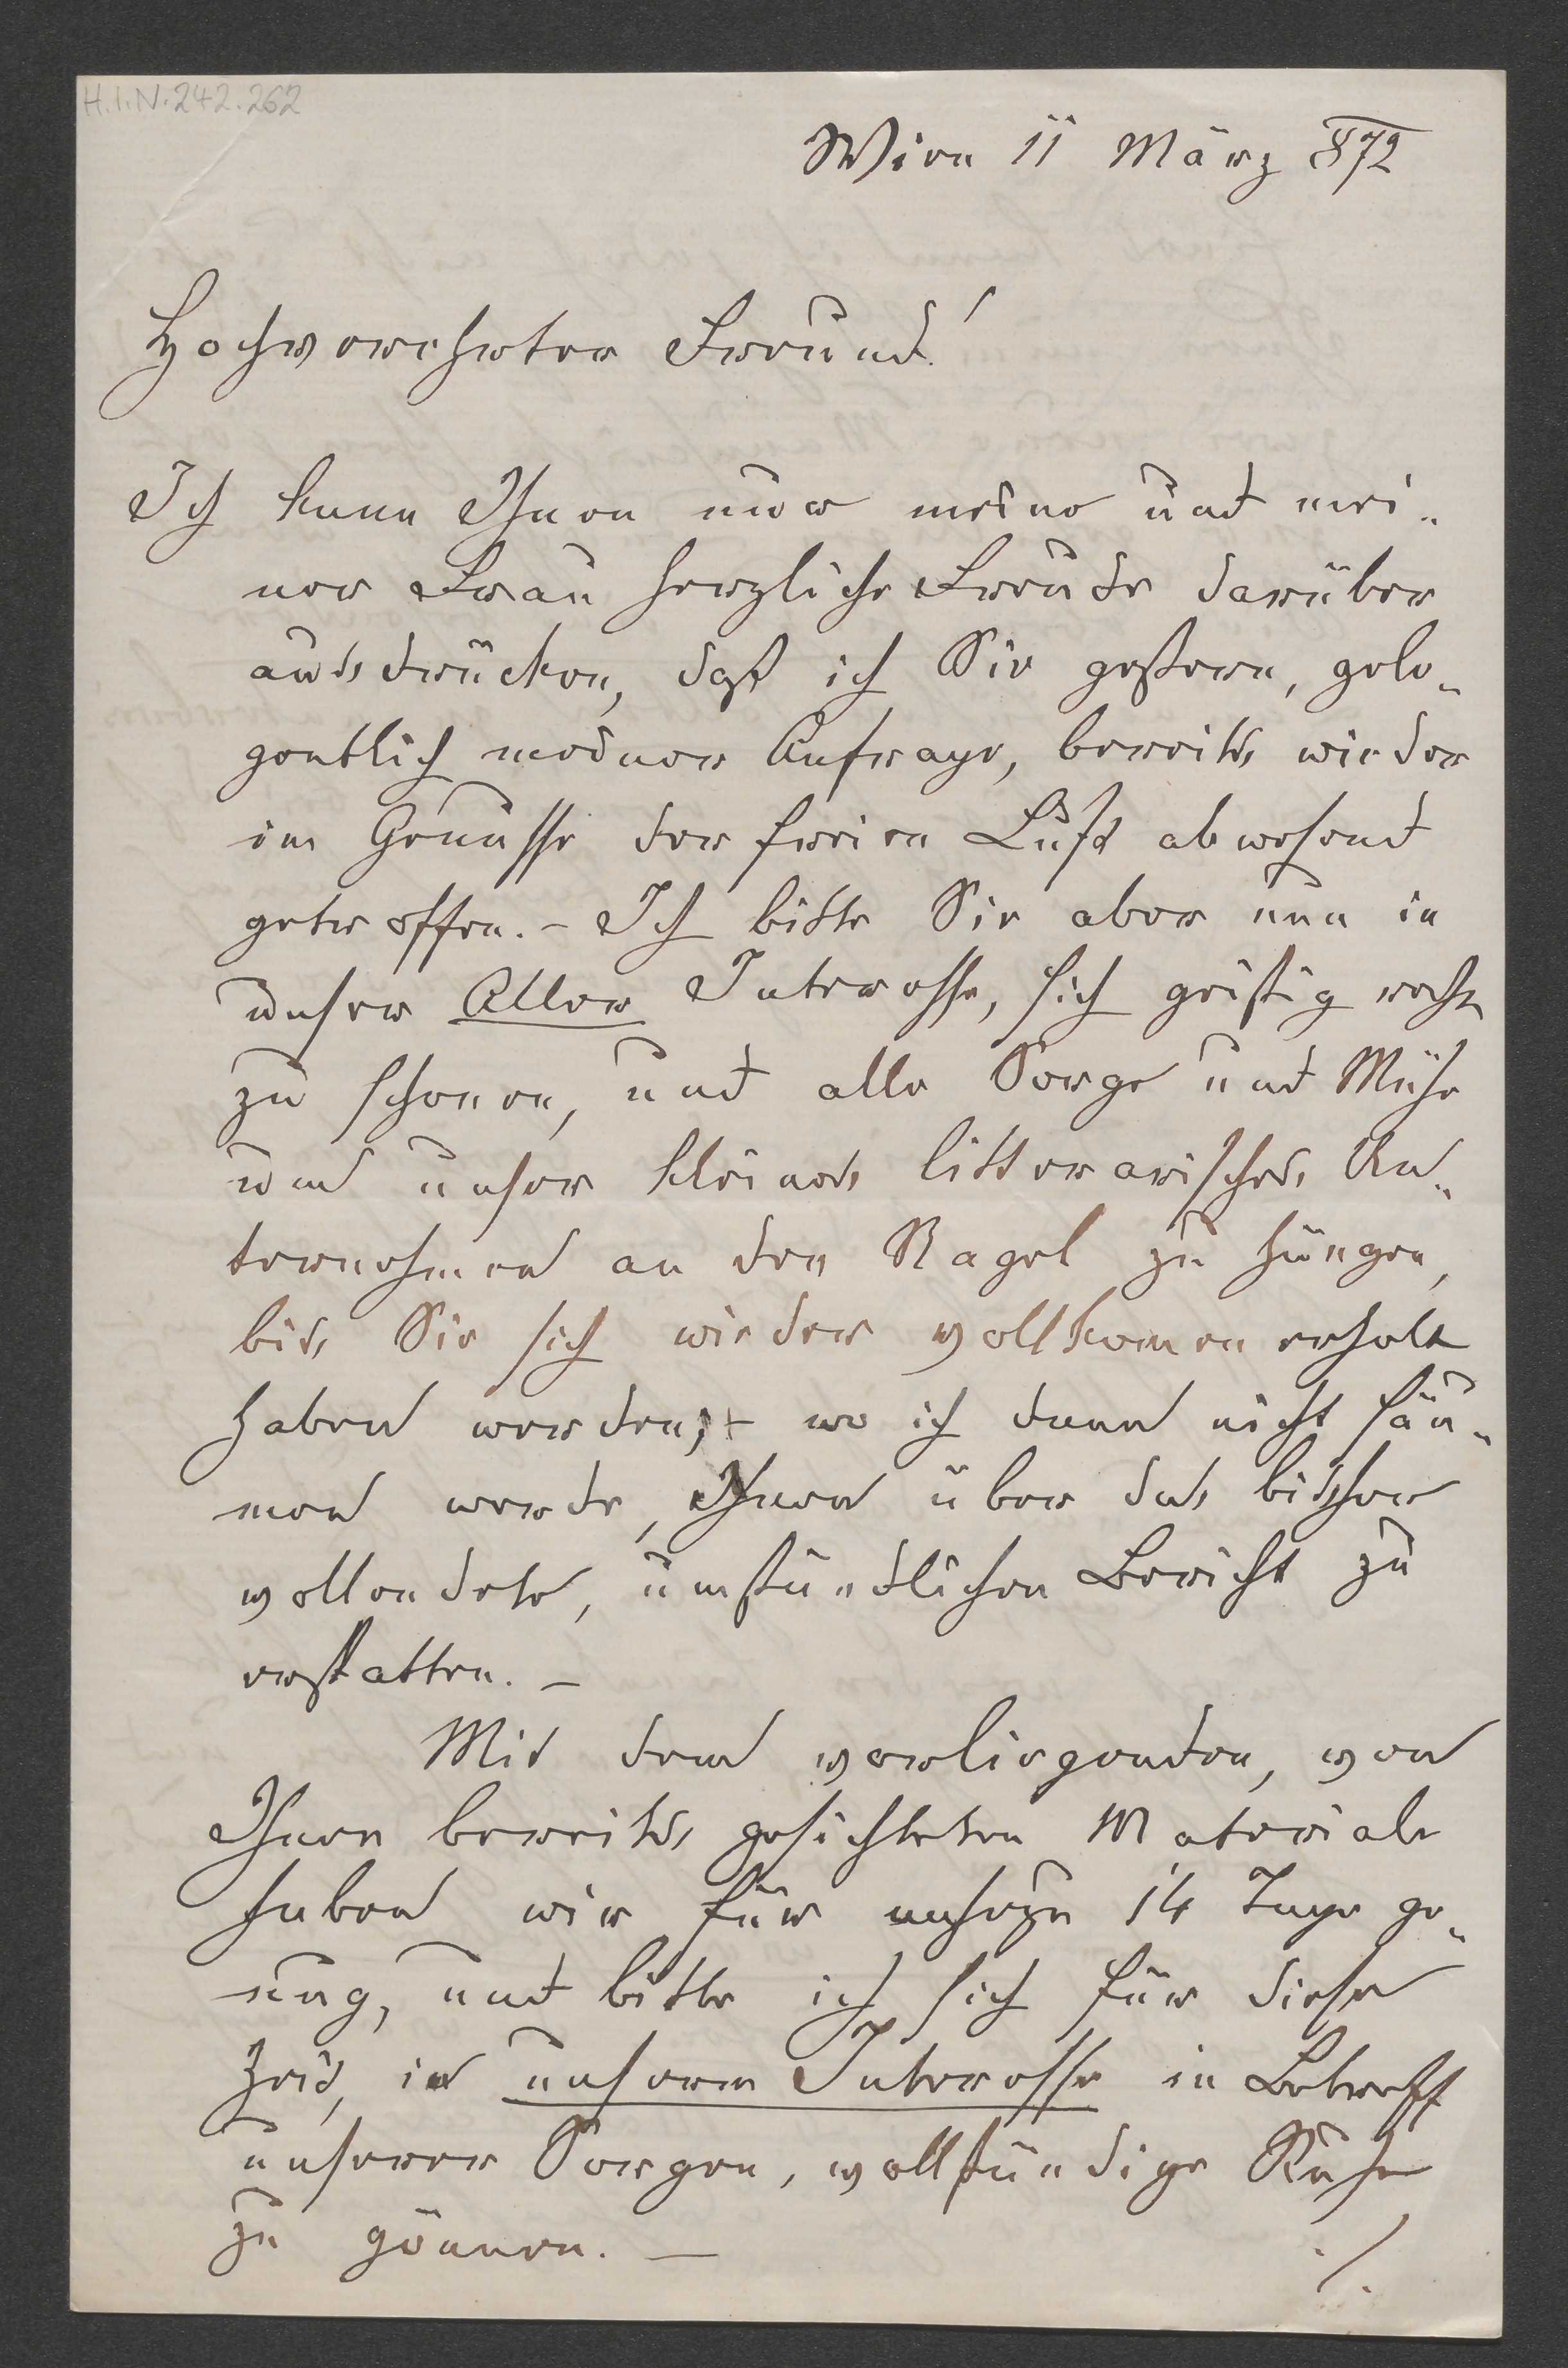 H.I.N. 242.262
Wien 11 März 872
Hochverehrter Freund!
Ich kann Ihnen nur meine und mei-
ner Frau herzliche Freude darüber
ausdrücken, daß ich Sie gestern, gele-
gentlich meiner Anfrage, bereits wieder
im Genusse der freien Luft abwesend
getroffen. – Ich bitte Sie aber nun in
unser Aller Interesse, sich geistig recht
zu schonen, und alle Sorge und Mühe
um unser kleines litterarisches Un-
ternehmen an den Nagel zu hängen,
bis Sie sich wieder vollkomen erholt
haben werden, – wo ich dann nicht säu-
men werde, Ihnen über das bisher
vollendete, umständlichen Bericht zu
erstatten. –
Mit dem vorliegenden, von
Ihnen bereits gesichteten Materiale
haben wir für 14 Tage ge-
nug, und bitte ich sich für diese
Zeit, in unserem Interesse in Betreff
unserer Sorgen, vollständige Ruhe
zu gönnen. –
./.